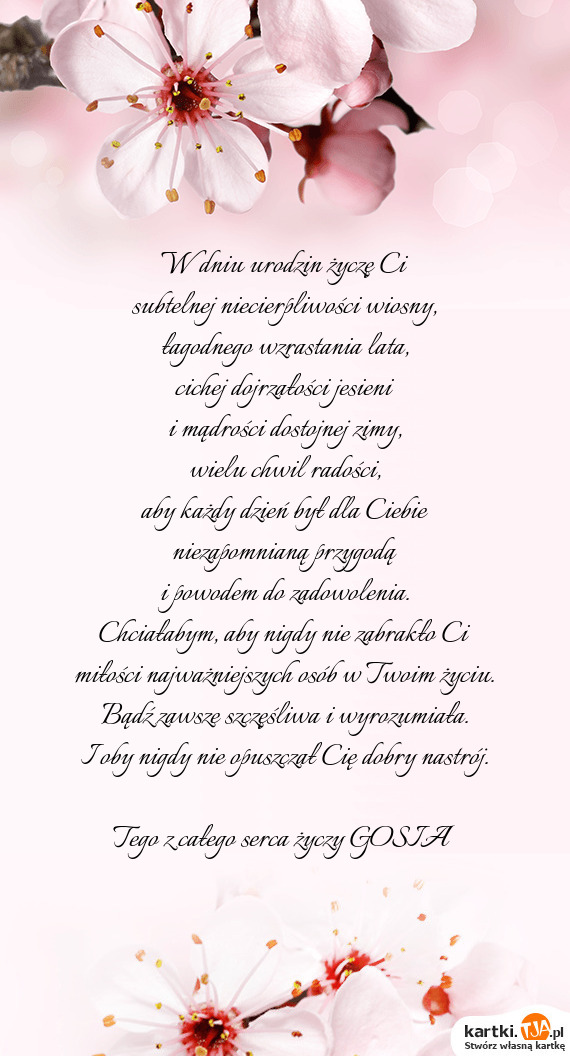 W dniu urodzin życzę Ci
subtelnej niecierpliwości wiosny,
łagodnego wzrastania lata,
cichej dojrzałości jesieni
i mądrości dostojnej zimy,
wielu chwil radości,
aby każdy dzień był dla Ciebie
niezapomnianą przygodą
i powodem do zadowolenia.
Chciałabym, aby nigdy nie zabrakło Ci
miłości najważniejszych osób w Twoim życiu.
Bądź zawsze szczęśliwa i wyrozumiała.
I oby nigdy nie opuszczał Cię dobry nastrój.
Tego z całego serca życzy GOSIA
kartki.TJA.pl
Stwórz własną kartkę